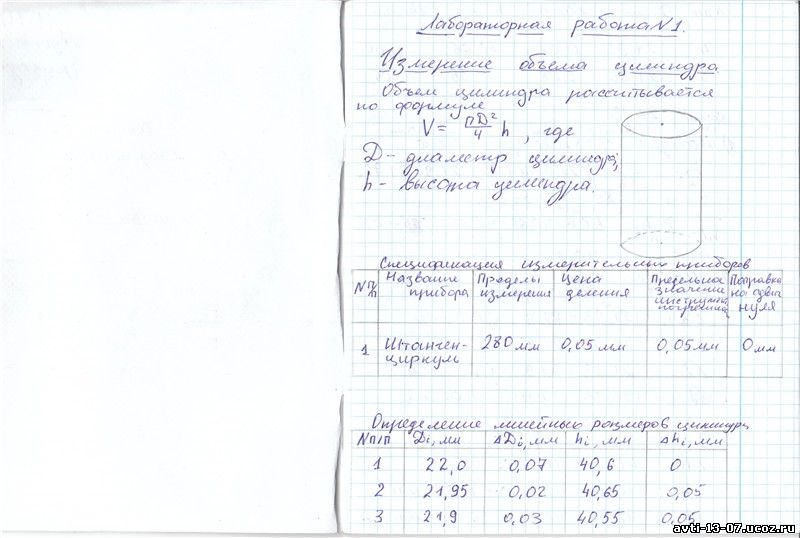 Лабораторная работа N1.
Измерение объема цилиндра
Объем цилиндра рассчитывается
по формуле
V = ПD²/4 h , где
D - диаметр цилиндра;
h - высота цилиндра.
Спецификация измерительных приборов
N п/п Название прибора Пределы измерения Цена деления Предельное значение инструмен. погрешности Поправка на сдвиг нуля
1 Штанген-циркуль 280 мм 0,05 мм 0,05 мм 0 мм
Определение линейных размеров цилиндра
N п/п Di, мм ΔDi, мм hi, мм Δhi, мм
1 22,0 0,07 40,6 0
2 21,95 0,02 40,65 0,05
3 21,9 0,03 40,55 0,05
avti-13-07.ucoz.ru